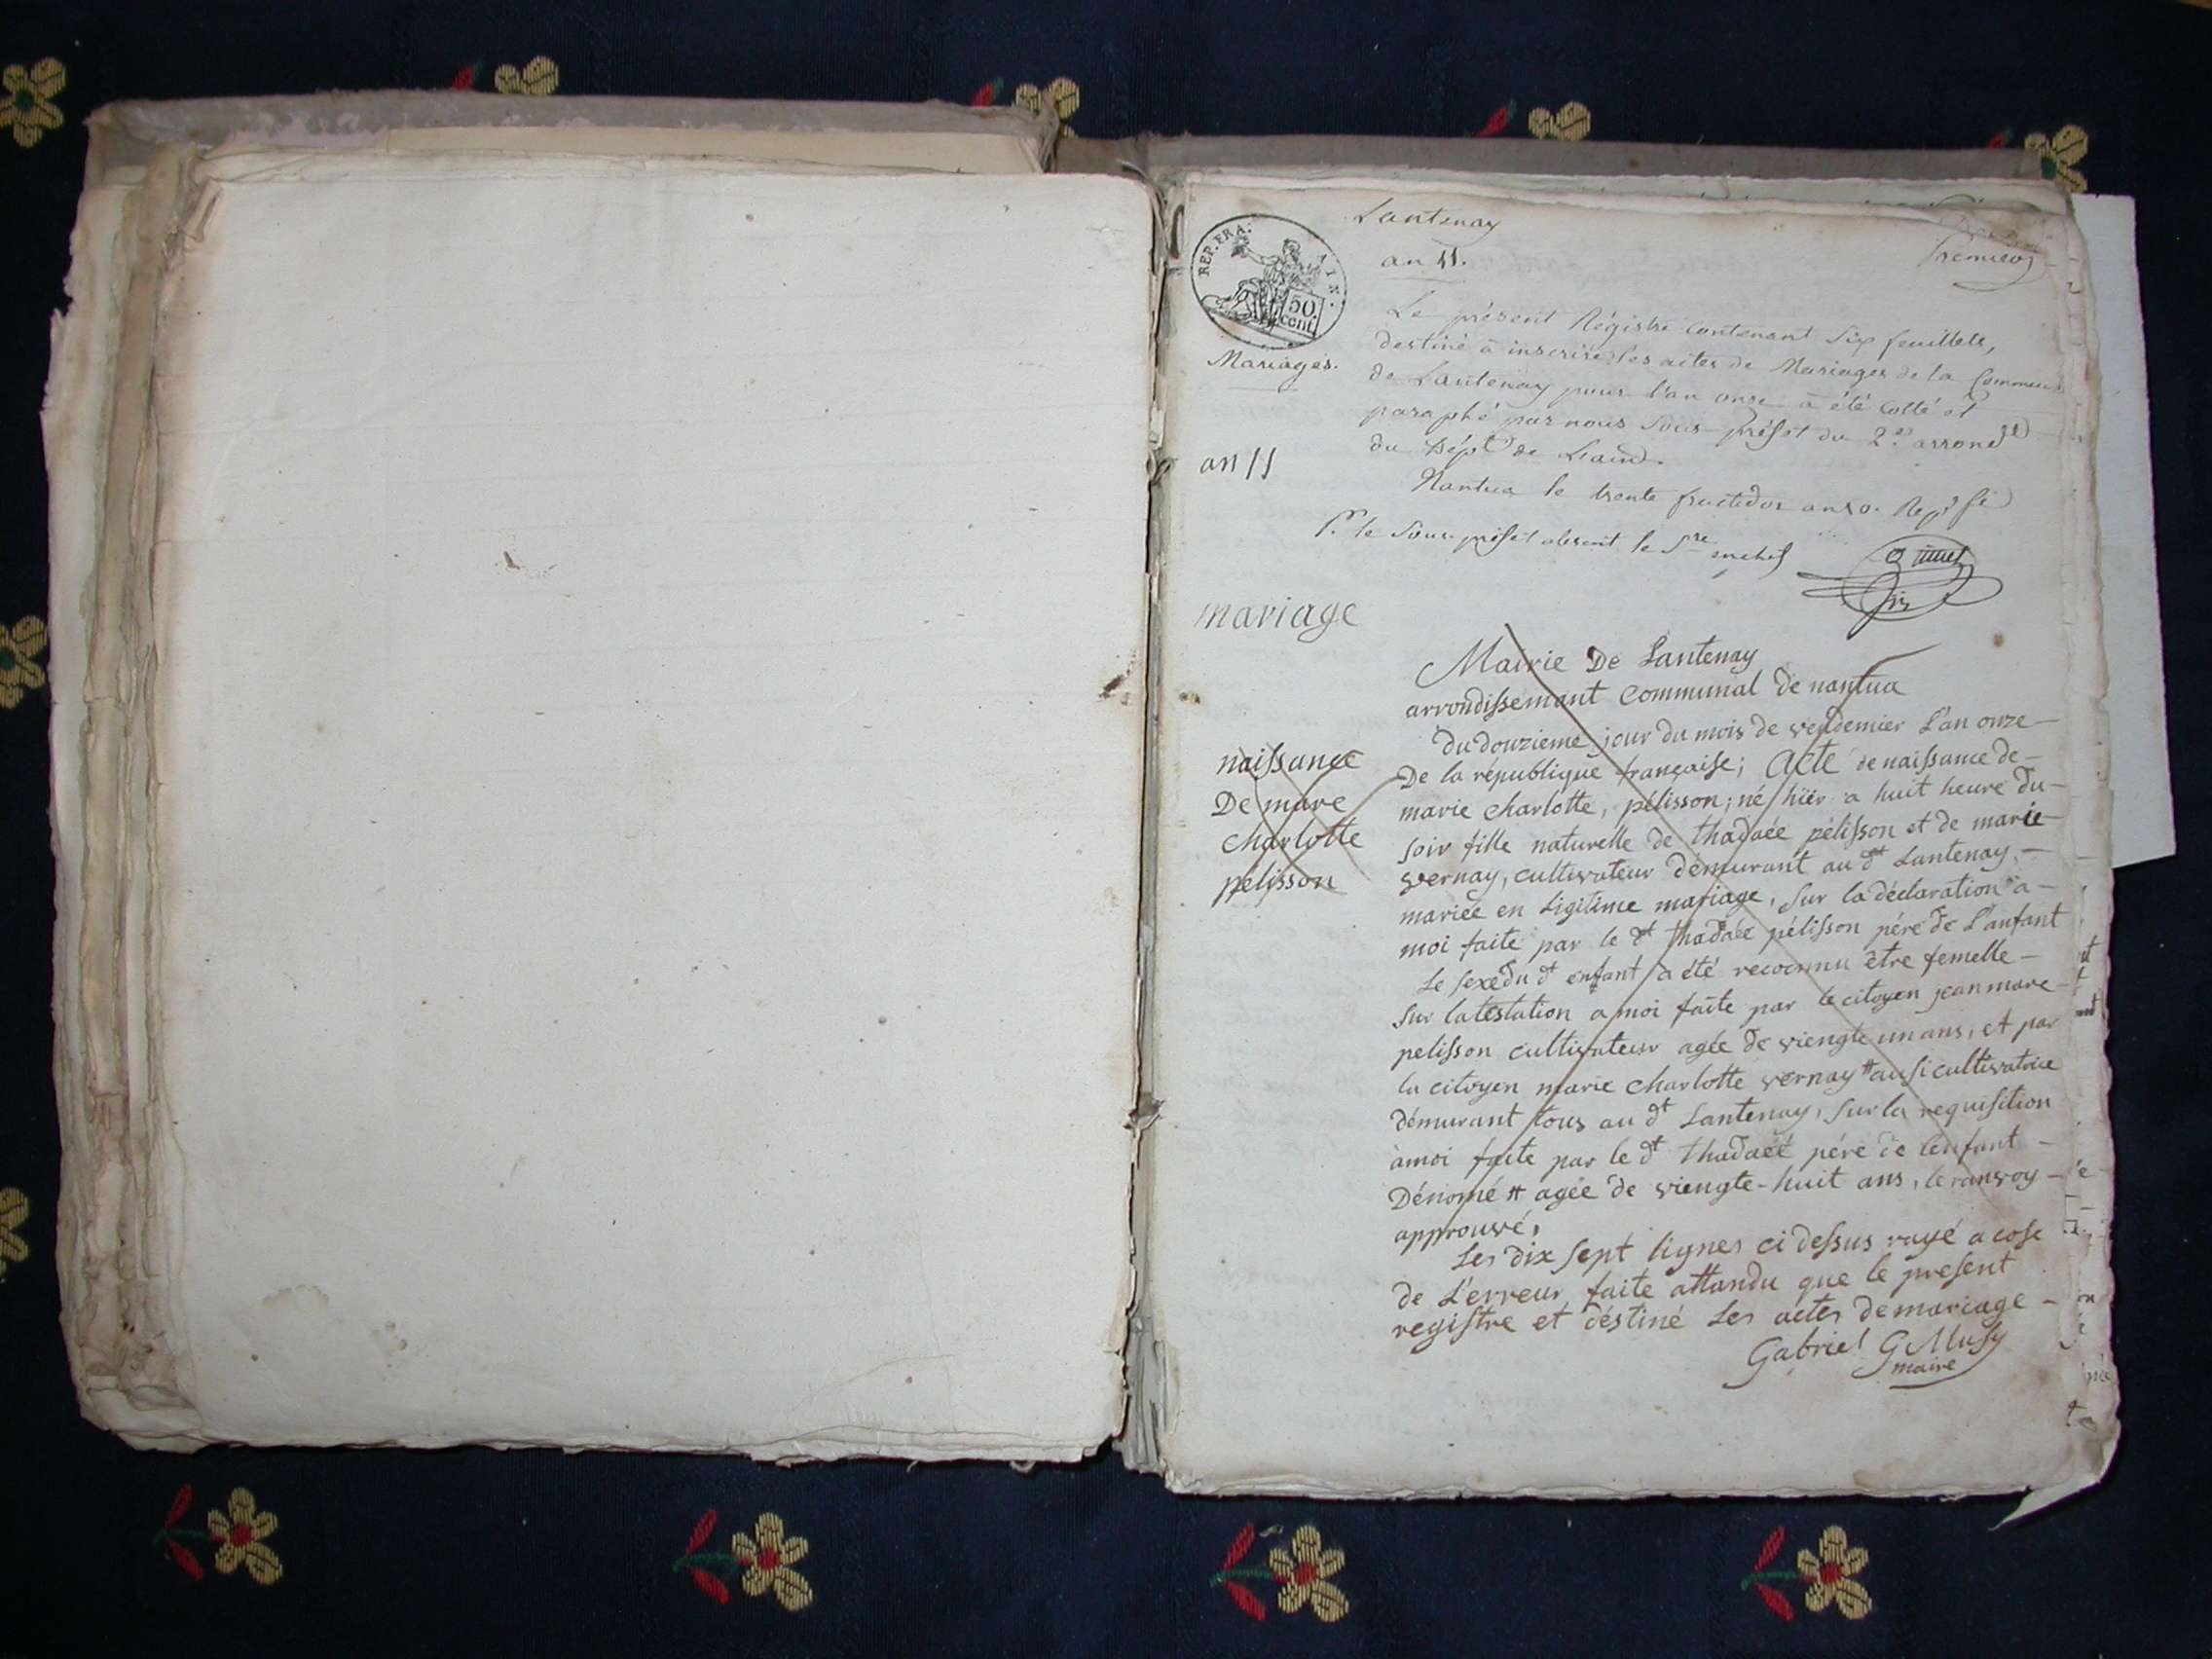 Lantenay
an 11.
Premier
REP. FRA. AIN.
50 cent.
Mariages.
Le présent Régistre contenant Six feuillets,
destiné à inscrire les actes de Mariages de la Commune
de Lantenay pour l'an onze a été cotté et
paraphé par nous Sous-préfet du 2e arrond
du Dépt de L'ain.
an 11
Nantua le trente fructidor an 10.
Pr le Sous-préfet absent le
mariage
Mairie De Lantenay
arrondissemant Communal De nantua
naissance
De mare
charlotte
pelisson
du douzieme jour du mois de vendemier L'an onze
De la république française; acte de naissance de
marie charlotte, pélisson; né hièr a huit heure du
soir fille naturelle de thadaée pélisson et de marie
vernay, cultivateur démurant au dt Lantenay,
mariée en Ligitime mariage, Sur la déclaration a
moi faite par le dt thadaée pélisson pére de L'anfant
Le sexe du dt enfant a été reconnu être femelle
Sur latestation a moi faite par le citoyen jean mare
pelisson cultivateur agée de viengte un ans, et par
la citoyen marie charlotte vernay # ausi cultivatrice
démurant tous au dt Lantenay, Sur la requisition
amoi faite par le dt thadaéé pére de lenfant
Dénomé # agée de viengte-huit ans, le ranvoy
approuvé,
Les dix sept lignes ci dessus rayé a cose
de L'erreur faite attandu que le present
registre et déstiné Les actes de mariage
Gabriel G Musy
maire